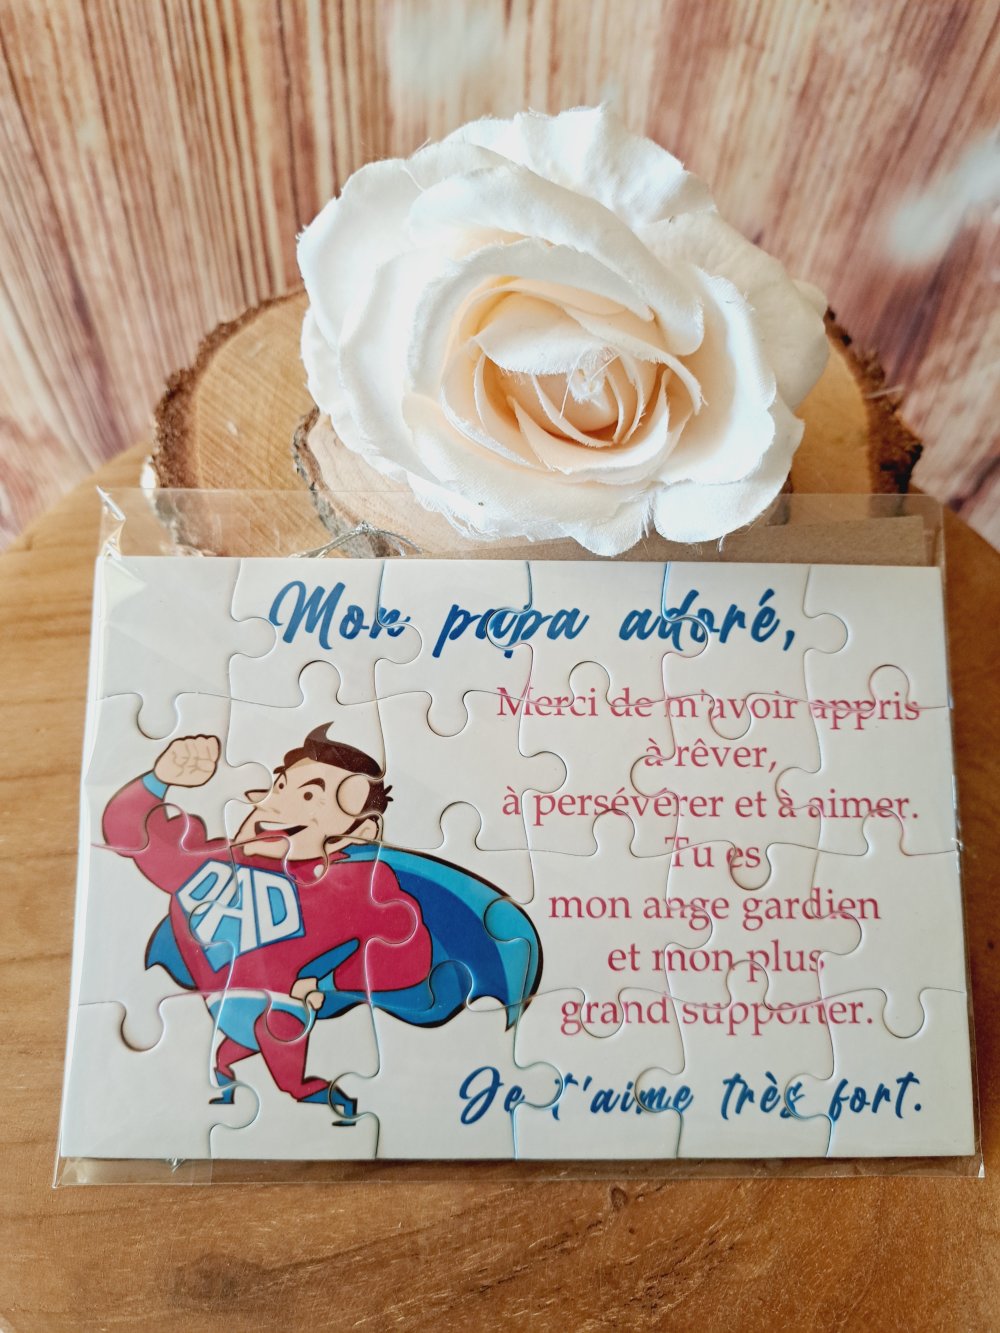 Mon papa adoré,
Merci de m'avoir appris
à rêver,
à persévérer et à aimer.
Tu es
mon ange gardien
et mon plus
grand supporter.
Je t'aime très fort.
DAD